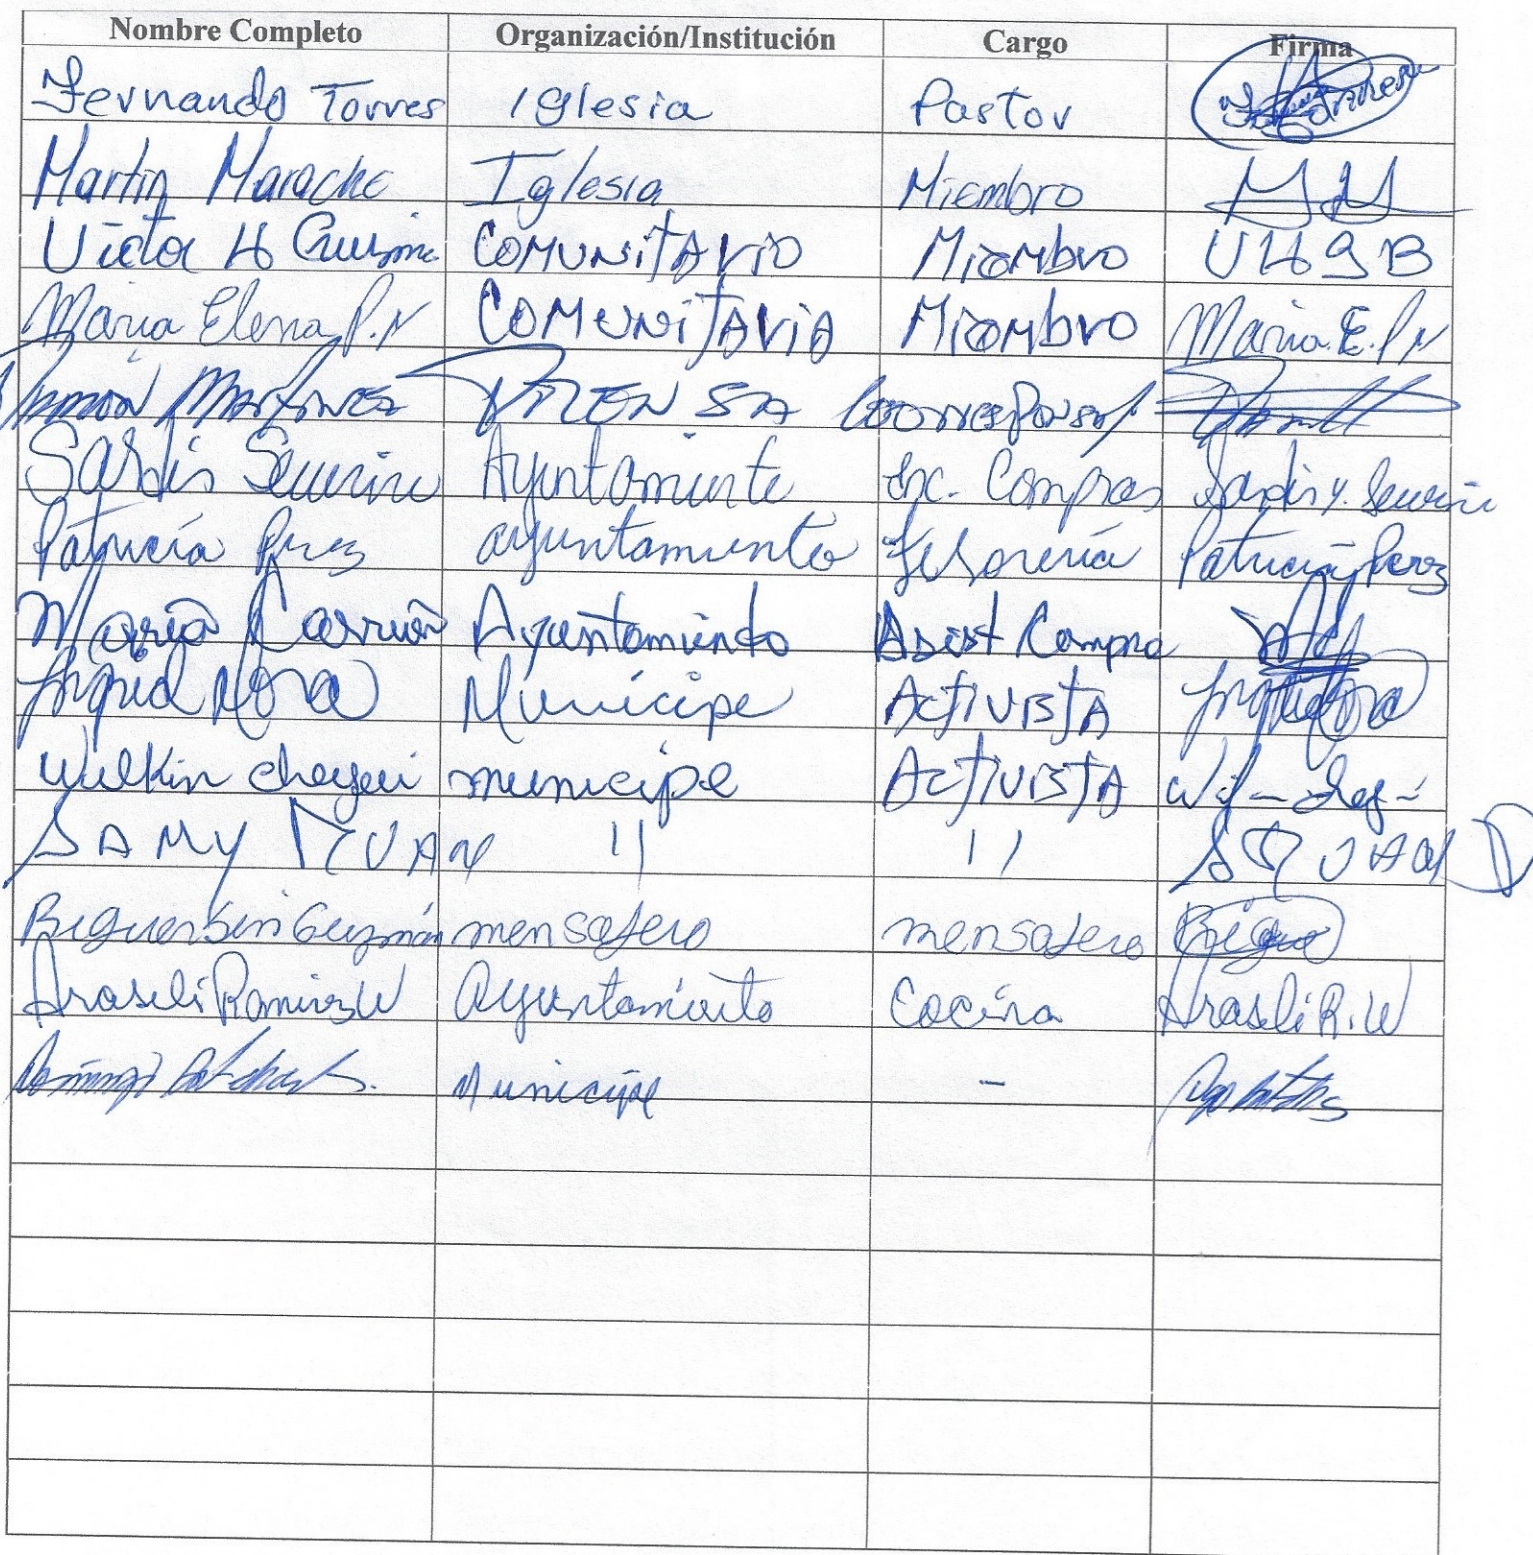 Nombre Completo Organización/Institución Cargo Firma
Fernando Torres Iglesia Pastor
Martin Marache Iglesia Miembro
Victor H COMUNITARIO Miembro UHGB
Maria Elena P.N COMUNITARIA Miembro Maria E. P N
Ramon Martinez PRENSA
Sardis Severino Ayuntamiento Enc. Compras Sardis y. Severino
Patricia Perez ayuntamiento Tesorería Patricia Perez
María Carrión Ayuntamiendo Asist Compra
Ingrid Mora Municipe ActiVISTA
Wilkin municipe ActiVISTA
SAMY 11 11
Guzmán mensajero mensajero
Araseli Ramirez W Ayuntamiento Cocina Araseli R. W
Municipe -